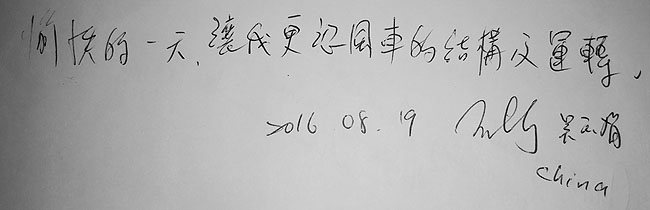 愉快的一天,讓我更認風車的結構及運轉,
2016 08. 19 吳
china